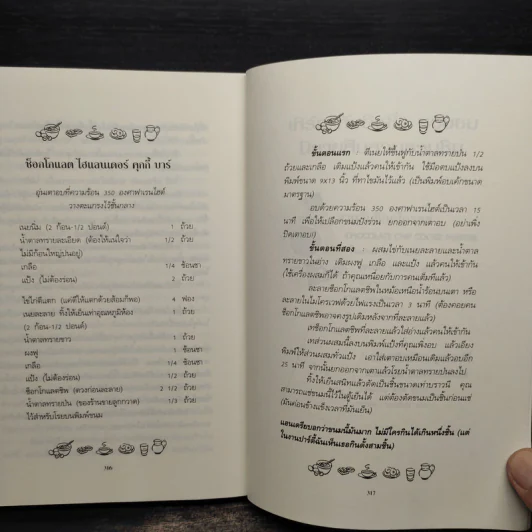 ช็อกโกแลต ไฮแลนเดอร์ คุกกี้ บาร์
อุ่นเตาอบที่ความร้อน 350 องศาฟาเรนไฮต์
วางตะแกรงไว้ชั้นกลาง
เนยนิ่ม (2 ก้อน-1/2 ปอนด์) 1 ถ้วย
น้ำตาลทรายละเอียด (ต้องให้แน่ใจว่า 1/2 ถ้วย
ไม่มีก้อนใหญ่ปนอยู่)
เกลือ 1/4 ช้อนชา
แป้ง (ไม่ต้องร่อน) 2 ถ้วย
ไข่ไก่ตีแตก (แค่ตีให้แตกด้วยส้อมก็พอ) 4 ฟอง
เนยละลาย ทิ้งให้เย็นเท่าอุณหภูมิห้อง 1 ถ้วย
(2 ก้อน-1/2 ปอนด์)
น้ำตาลทรายขาว 1 ถ้วย
ผงฟู 1 ช้อนชา
เกลือ 1/4 ช้อนชา
แป้ง (ไม่ต้องร่อน) 1/2 ถ้วย
ช็อกโกแลตชิป (ตวงก่อนละลาย) 2 1/2 ถ้วย
น้ำตาลทรายป่น (ของร้านขายลูกกวาด) 1/3 ถ้วย
ไว้สำหรับโรยบนพิมพ์ขนม
316
ขั้นตอนแรก ตีเนยให้ขึ้นฟูกับน้ำตาลทรายป่น 1/2
ถ้วยและเกลือ เติมแป้งแล้วคนให้เข้ากัน ใช้มือตบแป้งลงบน
พิมพ์ขนาด 9X13 นิ้ว ที่ทาไขมันไว้แล้ว (เป็นพิมพ์อบเค้กขนาด
มาตรฐาน)
อบด้วยความร้อน 350 องศาฟาเรนไฮต์เป็นเวลา 15
นาที เพื่อให้เปลือกขนมปังร่วน ยกออกจากเตาอบ (อย่าเพิ่ง
ปิดเตาอบ!)
ขั้นตอนที่สอง ผสมไข่กับเนยละลายและน้ำตาล
ทรายขาวในอ่าง เติมผงฟู เกลือ และแป้ง แล้วคนให้เข้ากัน
(ใช้เครื่องผสมก็ได้ ถ้าคุณเหนื่อยกับการคนเต็มทีแล้ว)
ละลายช็อกโกแลตชิพในหม้อเหนือน้ำร้อนบนเตา หรือ
ละลายในไมโครเวฟด้วยไฟแรงเป็นเวลา 3 นาที (ต้องคอยคน
ช็อกโกแลตชิพอาจคงรูปเดิมหลังจากที่ละลายแล้ว)
เทช็อกโกแลตชิพที่ละลายแล้วใส่อ่างแล้วคนให้เข้ากัน
เทส่วนผสมนี้ลงบนพิมพ์แป้งที่คุณเพิ่งอบ แล้วเอียง
พิมพ์ให้ส่วนผสมทั่วแป้ง เอาใส่เตาอบเหมือนเดิมแล้วอบอีก
25 นาที จากนั้นยกออกจากเตาแล้วโรยน้ำตาลทรายป่นลงไป
ทิ้งให้เย็นสนิทแล้วตัดเป็นชิ้นขนาดเท่าบราวนี คุณ
สามารถแช่ขนมนี้ไว้ในตู้เย็นได้ แต่ต้องตัดขนมเป็นชิ้นก่อนแช่
(มันค่อนข้างแข็งเวลาที่มันเย็น)
แอนเดรียบอกว่าขนมนี้มันมาก ไม่มีใครกินได้เกินหนึ่งชิ้น (แต่
ในงานปาร์ตี้ฉันเห็นเธอกินตั้งสามชิ้น)
317